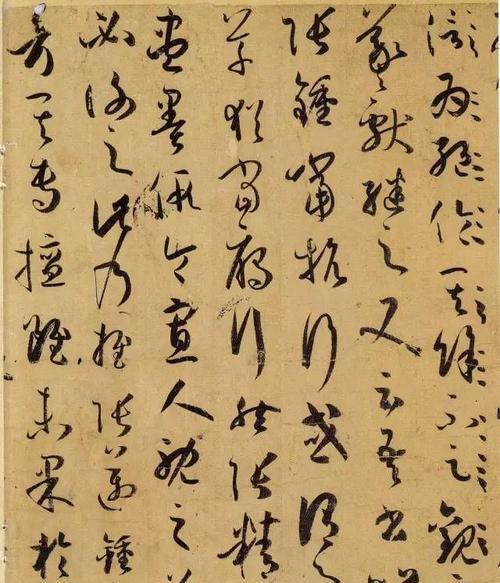 信為絕倫其餘不足觀
羲獻繼之又云吾書
張鍾當抗行或謂
草猶當雁行然張精
盡墨假令寡人耽之
必謝之此乃推張邁鍾
考其專擅雖未果於